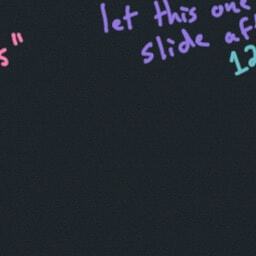 let this one
slide af
s"
12